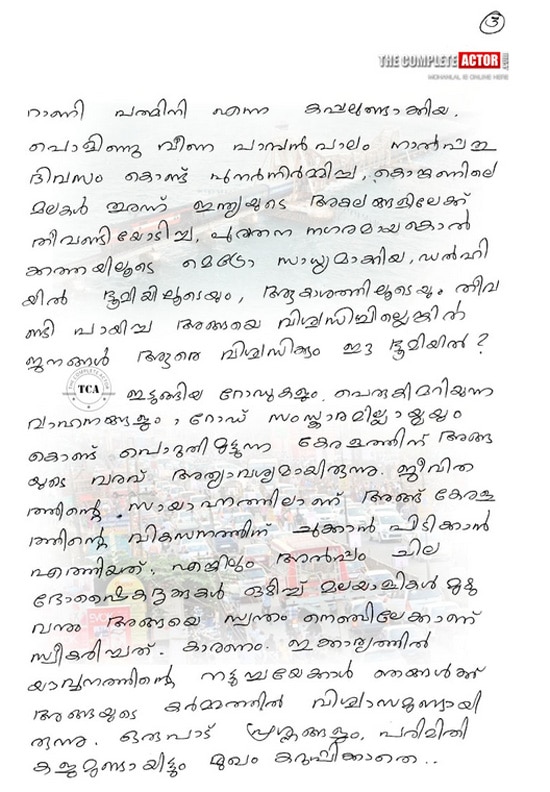 3
THE COMPLETE ACTOR
MOHANLAL IS ONLINE HERE
റാണി പത്മിനി എന്ന കപ്പലുണ്ടാക്കിയ,
പൊളിഞ്ഞു വീണ പാമ്പൻപാലം നാൽപ്പത്തഞ്ചു
ദിവസം കൊണ്ട് പുനർനിർമ്മിച്ച, കൊങ്കണിലെ
മലകൾ തുരന്ന് ഇന്ത്യയുടെ അകലങ്ങളിലേക്ക്
തീവണ്ടിയോടിച്ച, പുരാതന നഗരമായ കൊൽ
ക്കത്തയിലൂടെ മെട്രോ സാധ്യമാക്കിയ, ഡൽഹി
യിൽ ഭൂമിയിലൂടെയും, ആകാശത്തിലൂടെയും തീവ
ണ്ടി പായിച്ച അങ്ങയെ വിശ്വസിച്ചില്ലെങ്കിൽ
ജനങ്ങൾ ആരെ വിശ്വസിക്കും ഈ ഭൂമിയിൽ?
THE COMPLETE ACTOR
TCA
ഇടുങ്ങിയ റോഡുകളും, പെരുകിമറിയുന്ന
വാഹനങ്ങളും, റോഡ് സംസ്കാരമില്ലായ്മയും
കൊണ്ട് പൊറുതിമുട്ടുന്ന കേരളത്തിന് അങ്ങ
യുടെ വരവ് അത്യാവശ്യമായിരുന്നു. ജീവിത
ത്തിന്റെ സായാഹ്നത്തിലാണ് അങ്ങ് കേരള
ത്തിന്റെ വികസനത്തിന് ചുക്കാൻ പിടിക്കാൻ
എത്തിയത്. എങ്കിലും അൽപ്പം ചില
ദോഷൈകദൃക്കുകൾ ഒഴിച്ച് മലയാളികൾ മുഴു
വനും അങ്ങയെ സ്വന്തം നെഞ്ചിലേക്കാണ്
സ്വീകരിച്ചത്. കാരണം, ഇക്കാര്യത്തിൽ
യൗവ്വനത്തിന്റെ നട്ടുച്ചയേക്കാൾ ഞങ്ങൾക്ക്
അങ്ങയുടെ കർമ്മത്തിൽ വിശ്വാസമുണ്ടായി
രുന്നു. ഒരുപാട് പ്രശ്നങ്ങളും, പരിമിതി
കളുമുണ്ടായിട്ടും മുഖം കറുപ്പിക്കാതെ..